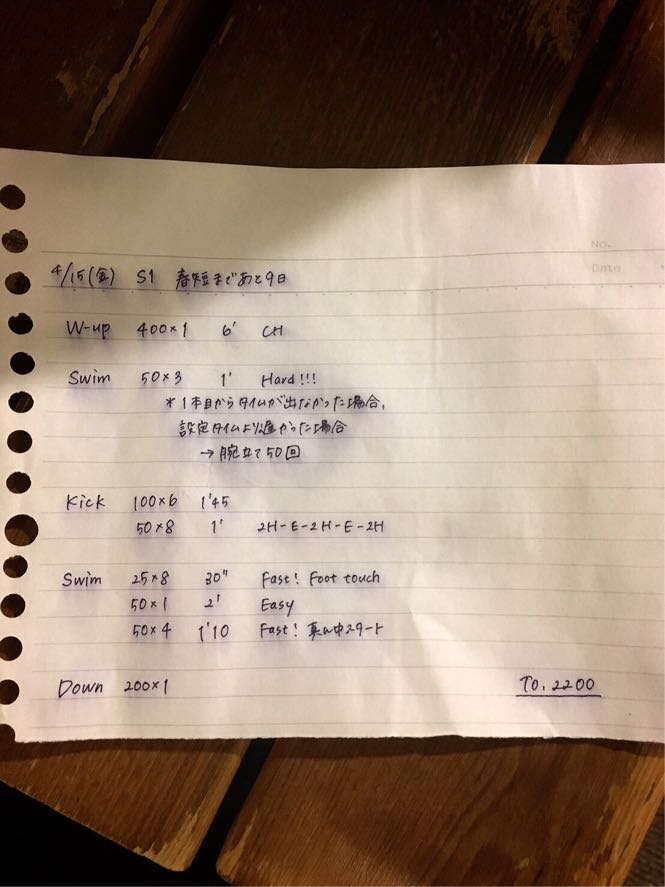 No.
Date
4/15(金) S1 春短まであと9日
W-up 400×1 6' CH
Swim 50×3 1' Hard!!!
*1本目からタイムが出なかった場合,
設定タイムより遅かった場合
→腕立て50回
Kick 100×6 1'45
50×8 1' 2H-E-2H-E-2H
Swim 25×8 30" Fast! Foot touch
50×1 2' Easy
50×4 1'10 Fast! 真ん中スタート
Down 200×1
TO. 2200